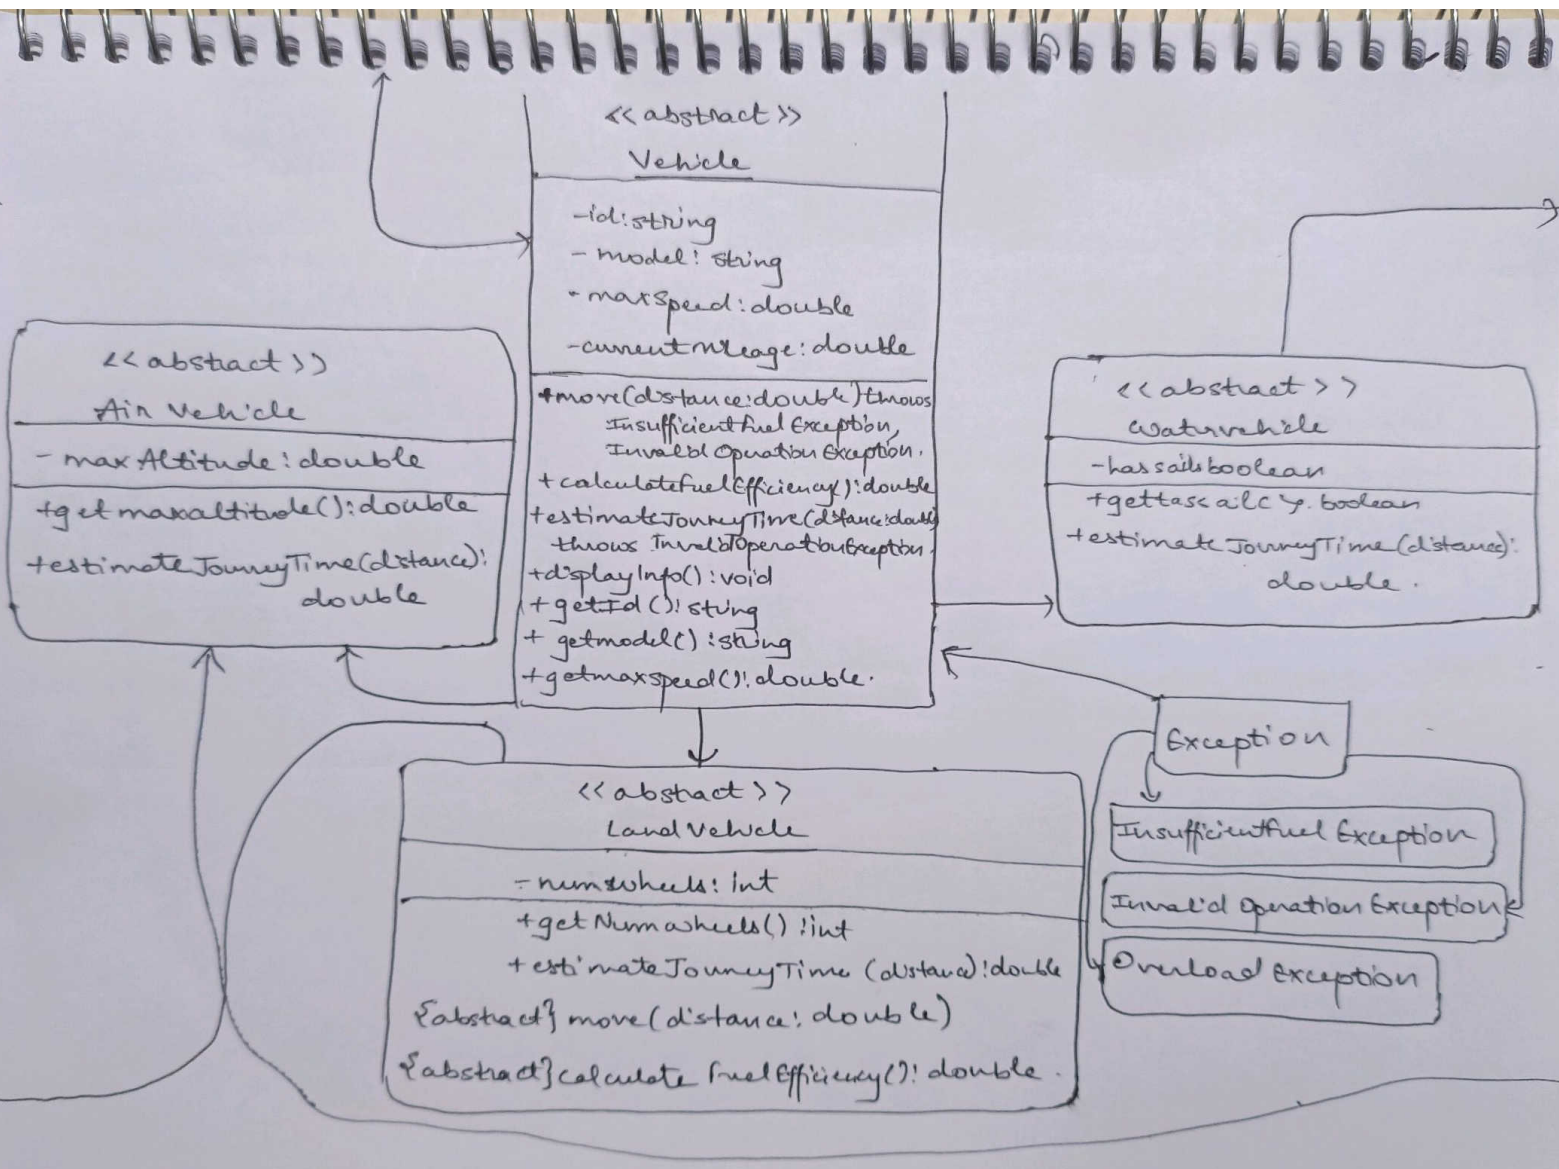 <<abstract>>
Vehicle
-id:string
- model: string
- maxspeed: double
-currentmileage: double
+move(distance:double)throws
InsufficientFuel Exception,
Invalid Operation Exception.
+ calculateFuelEfficiency():double
+estimateJourneyTime(distance:double)
throws InvalidOperationException.
+displayInfo(): void
+ getId(): string
+ getmodel(): string
+getmaxspeed(): double.
<<abstract>>
Air Vehicle
- maxAltitude: double
+getmaxaltitude(): double
+estimateJourneyTime(distance):
double
<<abstract>>
Watervehicle
-hassails boolean
boolean
+estimateJourneyTime(distance):
double.
<<abstract>>
LandVehicle
-numwheels: int
+getNumwheels(): int
+estimateJourneyTime (distance):double
{abstract} move(distance: double)
{abstract}calculate fuelEfficiency(): double.
Exception
Insufficientfuel Exception
Invalid Operation Exception
Overload Exception